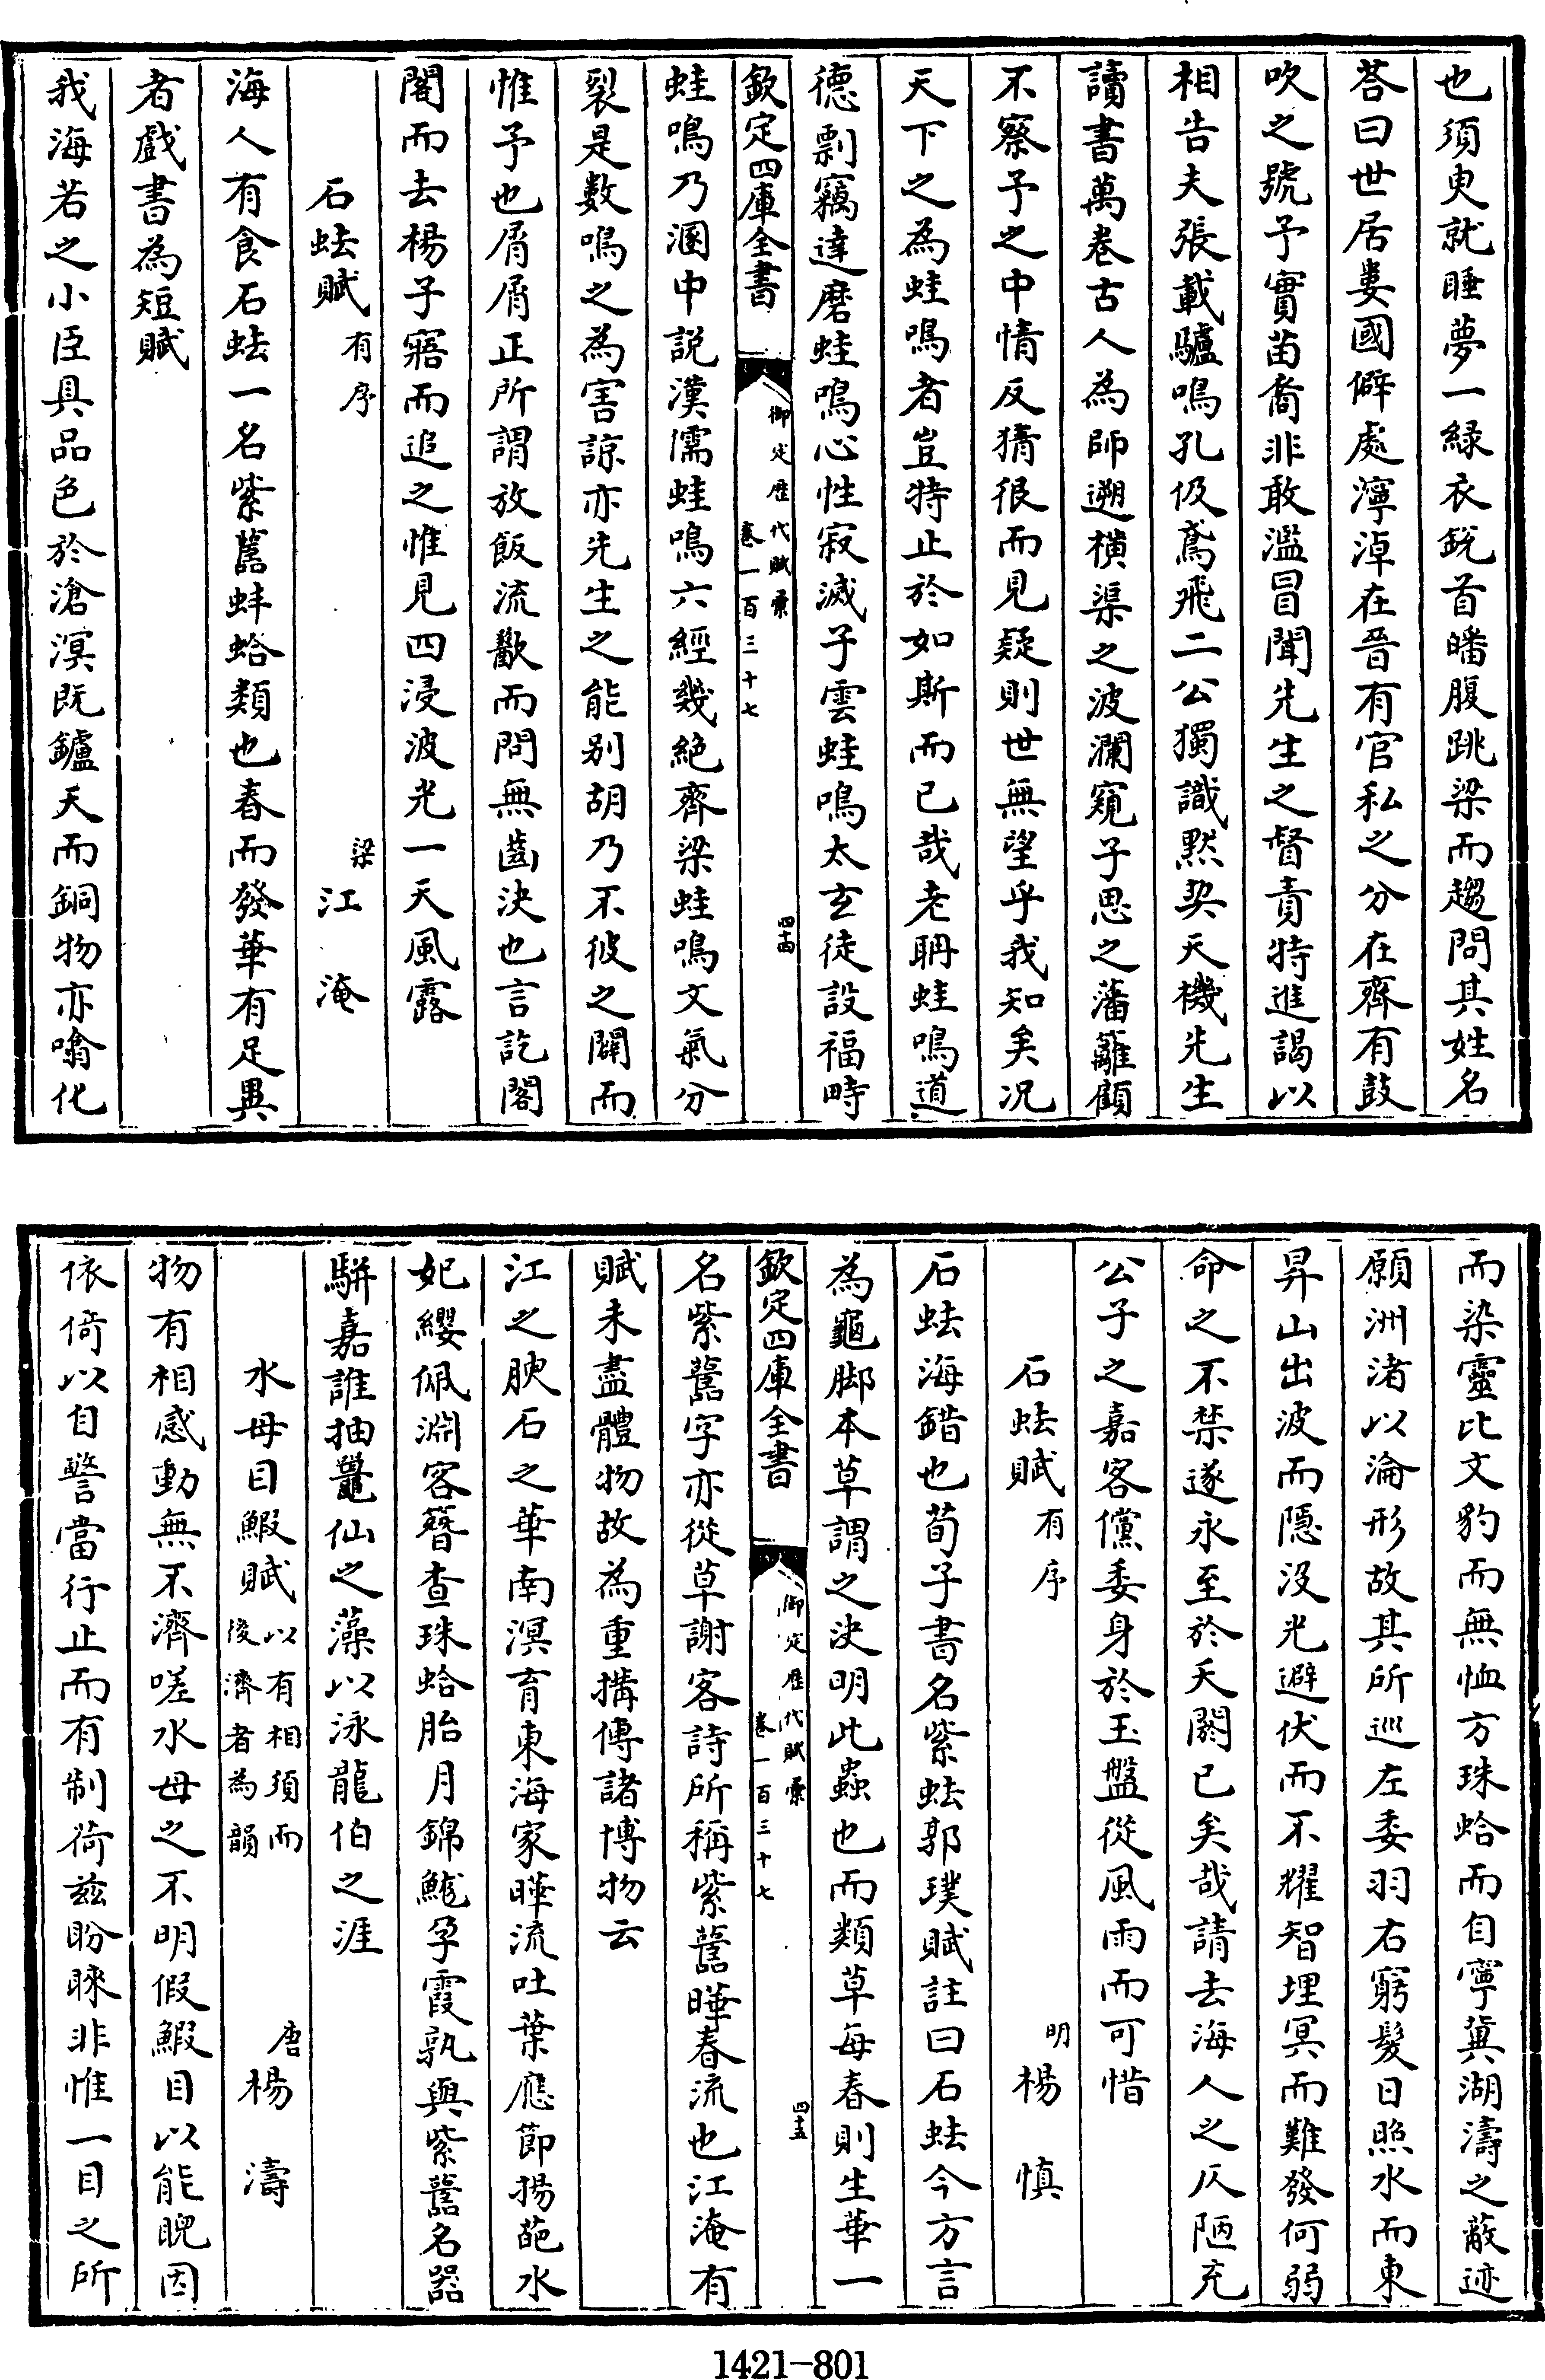 也須臾就睡夢一緑衣鋭首皤腹跳梁而趨問其姓名
荅曰世居婁國僻處濘淖在晉有官私之分在齊有鼓
吹之號予實苗裔非敢濫冒聞先生之督責特進謁以
相告夫張載驢鳴孔伋鳶飛二公獨識黙契天機先生
讀書萬卷古人為師遡橫渠之波瀾窺子思之藩籬顧
不察予之中情反猜很而見疑則世無望乎我知矣况
天下之為蛙鳴者豈特止於如斯而已哉老聃蛙鳴道
德剽竊達磨蛙鳴心性寂滅子雲蛙鳴太玄徒設福畤
欽定四庫全書
御定歴代賦彙
卷一百三十七
四十四
蛙鳴乃溷中說漢儒蛙鳴六經幾絶齊梁蛙鳴文氣分
裂是數鳴之為害諒亦先生之能别胡乃不彼之闢而
惟予也屑屑正所謂放飯流歠而問無齒決也言訖閣
閣而去楊子寤而追之惟見四浸波光一天風露
石蜐賦有序
梁江淹
海人有食石蜐一名紫䕯蚌蛤類也春而發華有足異
者戲書為短賦
我海若之小臣具品色於滄溟既鑪天而銅物亦噏化
而染靈比文豹而無恤方珠蛤而自寧冀湖濤之蔽迹
願洲渚以淪形故其所巡左委羽右窮髪日照水而東
昇山出波而隠没光避伏而不耀智埋冥而難發何弱
命之不禁遂永至於天閼已矣哉請去海人之仄陋充
公子之嘉客儻委身於玉盤從風雨而可惜
石蜐賦有序
明楊慎
石蜐海錯也荀子書名紫蜐郭璞賦註曰石蜐今方言
為龜脚本草謂之決明此蟲也而類草每春則生華一
欽定四庫全書
御定歴代賦彙
卷一百三十七
四十五
名紫䕯字亦從草謝客詩所稱紫䕯曄春流也江淹有
賦未盡體物故為重搆傳諸博物云
江之腴石之華南溟育東海家曄流吐葉應節揚葩水
妃纓佩淵客簪查珠蛤胎月錦鮵孕霞孰與紫䕯名器
駢嘉誰抽鼉仙之藻以泳龍伯之涯
水母目鰕賦以有相須而後濟者為韻
唐楊濤
物有相感動無不濟嗟水母之不明假鰕目以能睨因
依倚以自警當行止而有制荷兹盼睞非惟一目之所
1421-801